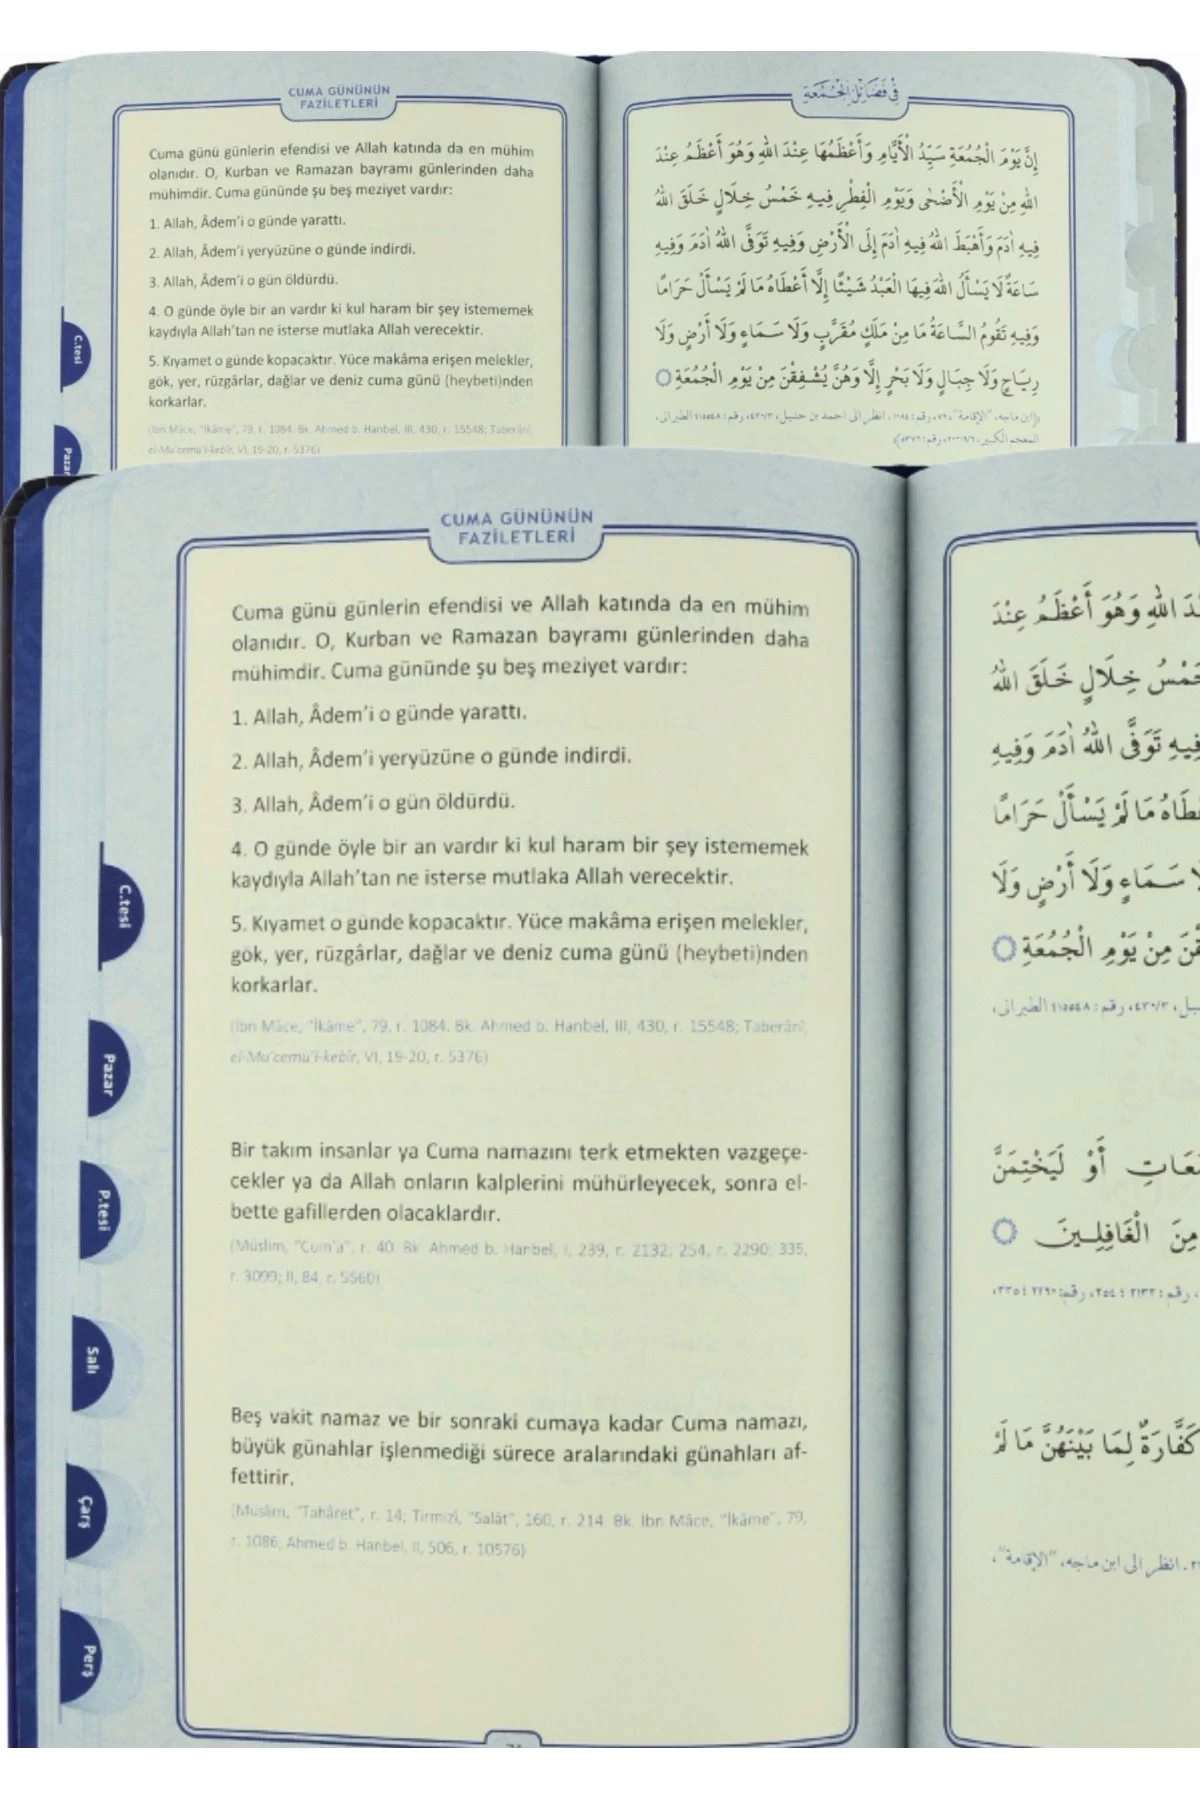 CUMA GÜNÜNÜN
FAZİLETLERİ
Cuma günü günlerin efendisi ve Allah katında da en mühim
olanıdır. O, Kurban ve Ramazan bayramı günlerinden daha
mühimdir. Cuma gününde şu beş meziyet vardır:
1. Allah, Âdem’i o günde yarattı.
2. Allah, Âdem’i yeryüzüne o günde indirdi.
3. Allah, Âdem’i o gün öldürdü.
4. O günde öyle bir an vardır ki kul haram bir şey istememek
kaydıyla Allah’tan ne isterse mutlaka Allah verecektir.
5. Kıyamet o günde kopacaktır. Yüce makâma erişen melekler,
gök, yer, rüzgârlar, dağlar ve deniz cuma günü (heybeti)nden
korkarlar.
(İbn Mâce, "İkâme", 79, r. 1084. Bk. Ahmed b. Hanbel, III, 430, r. 15548; Taberânî,
el-Mu'cemu'l-kebîr, VI, 19-20, r. 5376)
C.tesi
Pazar
فِي فَضَائِلِ الْجُمُعَةِ
إِنَّ يَوْمَ الْجُمُعَةِ سَيِّدُ الْأَيَّامِ وَأَعْظَمُهَا عِنْدَ اللهِ وَهُوَ أَعْظَمُ عِنْدَ
اللهِ مِنْ يَوْمِ الْأَضْحٰى وَيَوْمِ الْفِطْرِ فِيهِ خَمْسُ خِلَالٍ خَلَقَ اللهُ
فِيهِ اٰدَمَ وَأَهْبَطَ اللهُ فِيهِ اٰدَمَ إِلَى الْأَرْضِ وَفِيهِ تَوَفَّى اللهُ اٰدَمَ وَفِيهِ
سَاعَةٌ لَا يَسْأَلُ اللهَ فِيهَا الْعَبْدُ شَيْئًا إِلَّا أَعْطَاهُ مَا لَمْ يَسْأَلْ حَرَامًا
وَفِيهِ تَقُومُ السَّاعَةُ مَا مِنْ مَلَكٍ مُقَرَّبٍ وَلَا سَمَاءٍ وَلَا أَرْضٍ وَلَا
رِيَاحٍ وَلَا جِبَالٍ وَلَا بَحْرٍ إِلَّا وَهُنَّ يُشْفِقْنَ مِنْ يَوْمِ الْجُمُعَةِ
(ابن ماجه، "الإقامة"، ٧٩، رقم: ١٠٨٤. انظر الى احمد بن حنبل، ٤٣٠/٣، رقم: ١٥٥٤٨؛ الطبراني،
المعجم الكبير، ١٩/٦-٢٠، رقم: ٥٣٧٦)
CUMA GÜNÜNÜN
FAZİLETLERİ
Cuma günü günlerin efendisi ve Allah katında da en mühim
olanıdır. O, Kurban ve Ramazan bayramı günlerinden daha
mühimdir. Cuma gününde şu beş meziyet vardır:
1. Allah, Âdem’i o günde yarattı.
2. Allah, Âdem’i yeryüzüne o günde indirdi.
3. Allah, Âdem’i o gün öldürdü.
4. O günde öyle bir an vardır ki kul haram bir şey istememek
kaydıyla Allah’tan ne isterse mutlaka Allah verecektir.
5. Kıyamet o günde kopacaktır. Yüce makâma erişen melekler,
gök, yer, rüzgârlar, dağlar ve deniz cuma günü (heybeti)nden
korkarlar.
(İbn Mâce, "İkâme", 79, r. 1084. Bk. Ahmed b. Hanbel, III, 430, r. 15548; Taberânî,
el-Mu'cemu'l-kebîr, VI, 19-20, r. 5376)
Bir takım insanlar ya Cuma namazını terk etmekten vazgeçe-
cekler ya da Allah onların kalplerini mühürleyecek, sonra el-
bette gafillerden olacaklardır.
(Müslim, "Cum'a", r. 40. Bk. Ahmed b. Hanbel, I, 239, r. 2132; 254, r. 2290; 335,
r. 3099; II, 84, r. 5560)
Beş vakit namaz ve bir sonraki cumaya kadar Cuma namazı,
büyük günahlar işlenmediği sürece aralarındaki günahları af-
fettirir.
(Müslim, "Tahâret", r. 14; Tirmizî, "Salât", 160, r. 214. Bk. İbn Mâce, "İkâme", 79,
r. 1086; Ahmed b. Hanbel, II, 506, r. 10576)
C.tesi
Pazar
P.tesi
Salı
Çarş
Perş
اللهِ وَهُوَ أَعْظَمُ عِنْدَ
خَمْسُ خِلَالٍ خَلَقَ اللهُ
فِيهِ تَوَفَّى اللهُ اٰدَمَ وَفِيهِ
مَا لَمْ يَسْأَلْ حَرَامًا
سَمَاءٍ وَلَا أَرْضٍ وَلَا
مِنْ يَوْمِ الْجُمُعَةِ
٤٣٠/٣، رقم: ١٥٥٤٨؛ الطبراني،
أَوْ لَيَخْتِمَنَّ
مِنَ الْغَافِلِينَ
رقم: ٢١٣٢؛ ٢٥٤، رقم: ٢٢٩٠؛ ٣٣٥،
كَفَّارَةٌ لِمَا بَيْنَهُنَّ مَا لَمْ
انظر الى ابن ماجه، "الإقامة"،